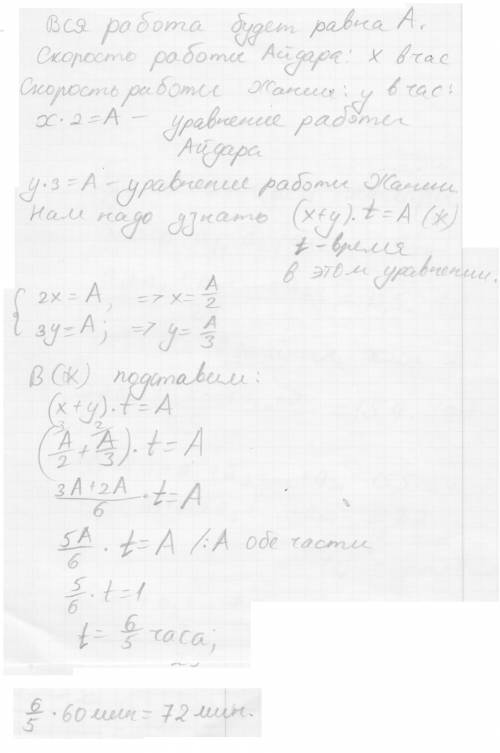 Вся работа будет равна А.
Скорость работы Айдара: x в час
Скорость работы Жании: y в час:
x·2=A – уравнение работы
Айдара
y·3=A – уравнение работы Жании
Нам надо узнать (x+y)·t=A (*)
t – время
в этом уравнении.
{ 2x=A, => x=A/2
3y=A; => y=A/3
В (*) подставим:
(x+y)·t=A
3 2
(A/2+A/3)·t=A
(3A+2A)/6·t=A
5A/6·t=A /:A обе части
5/6·t=1
t=6/5 часа;
6/5·60мин=72мин.